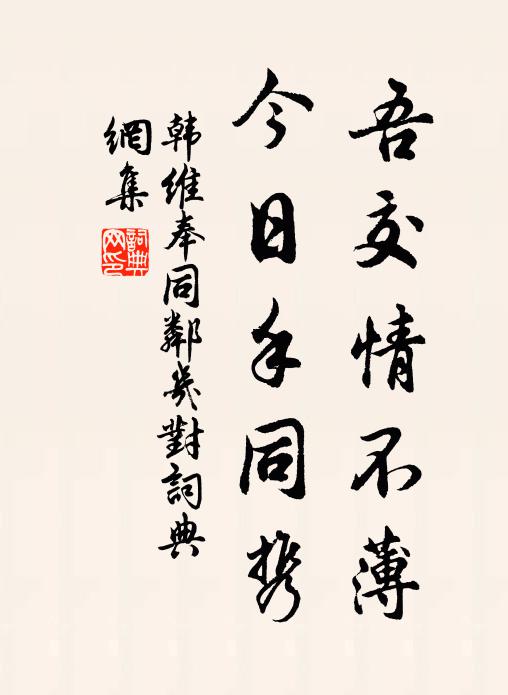 吾交情不薄
今日手同携
韩維奉同鄰幾對詞典
網集
詞典網印